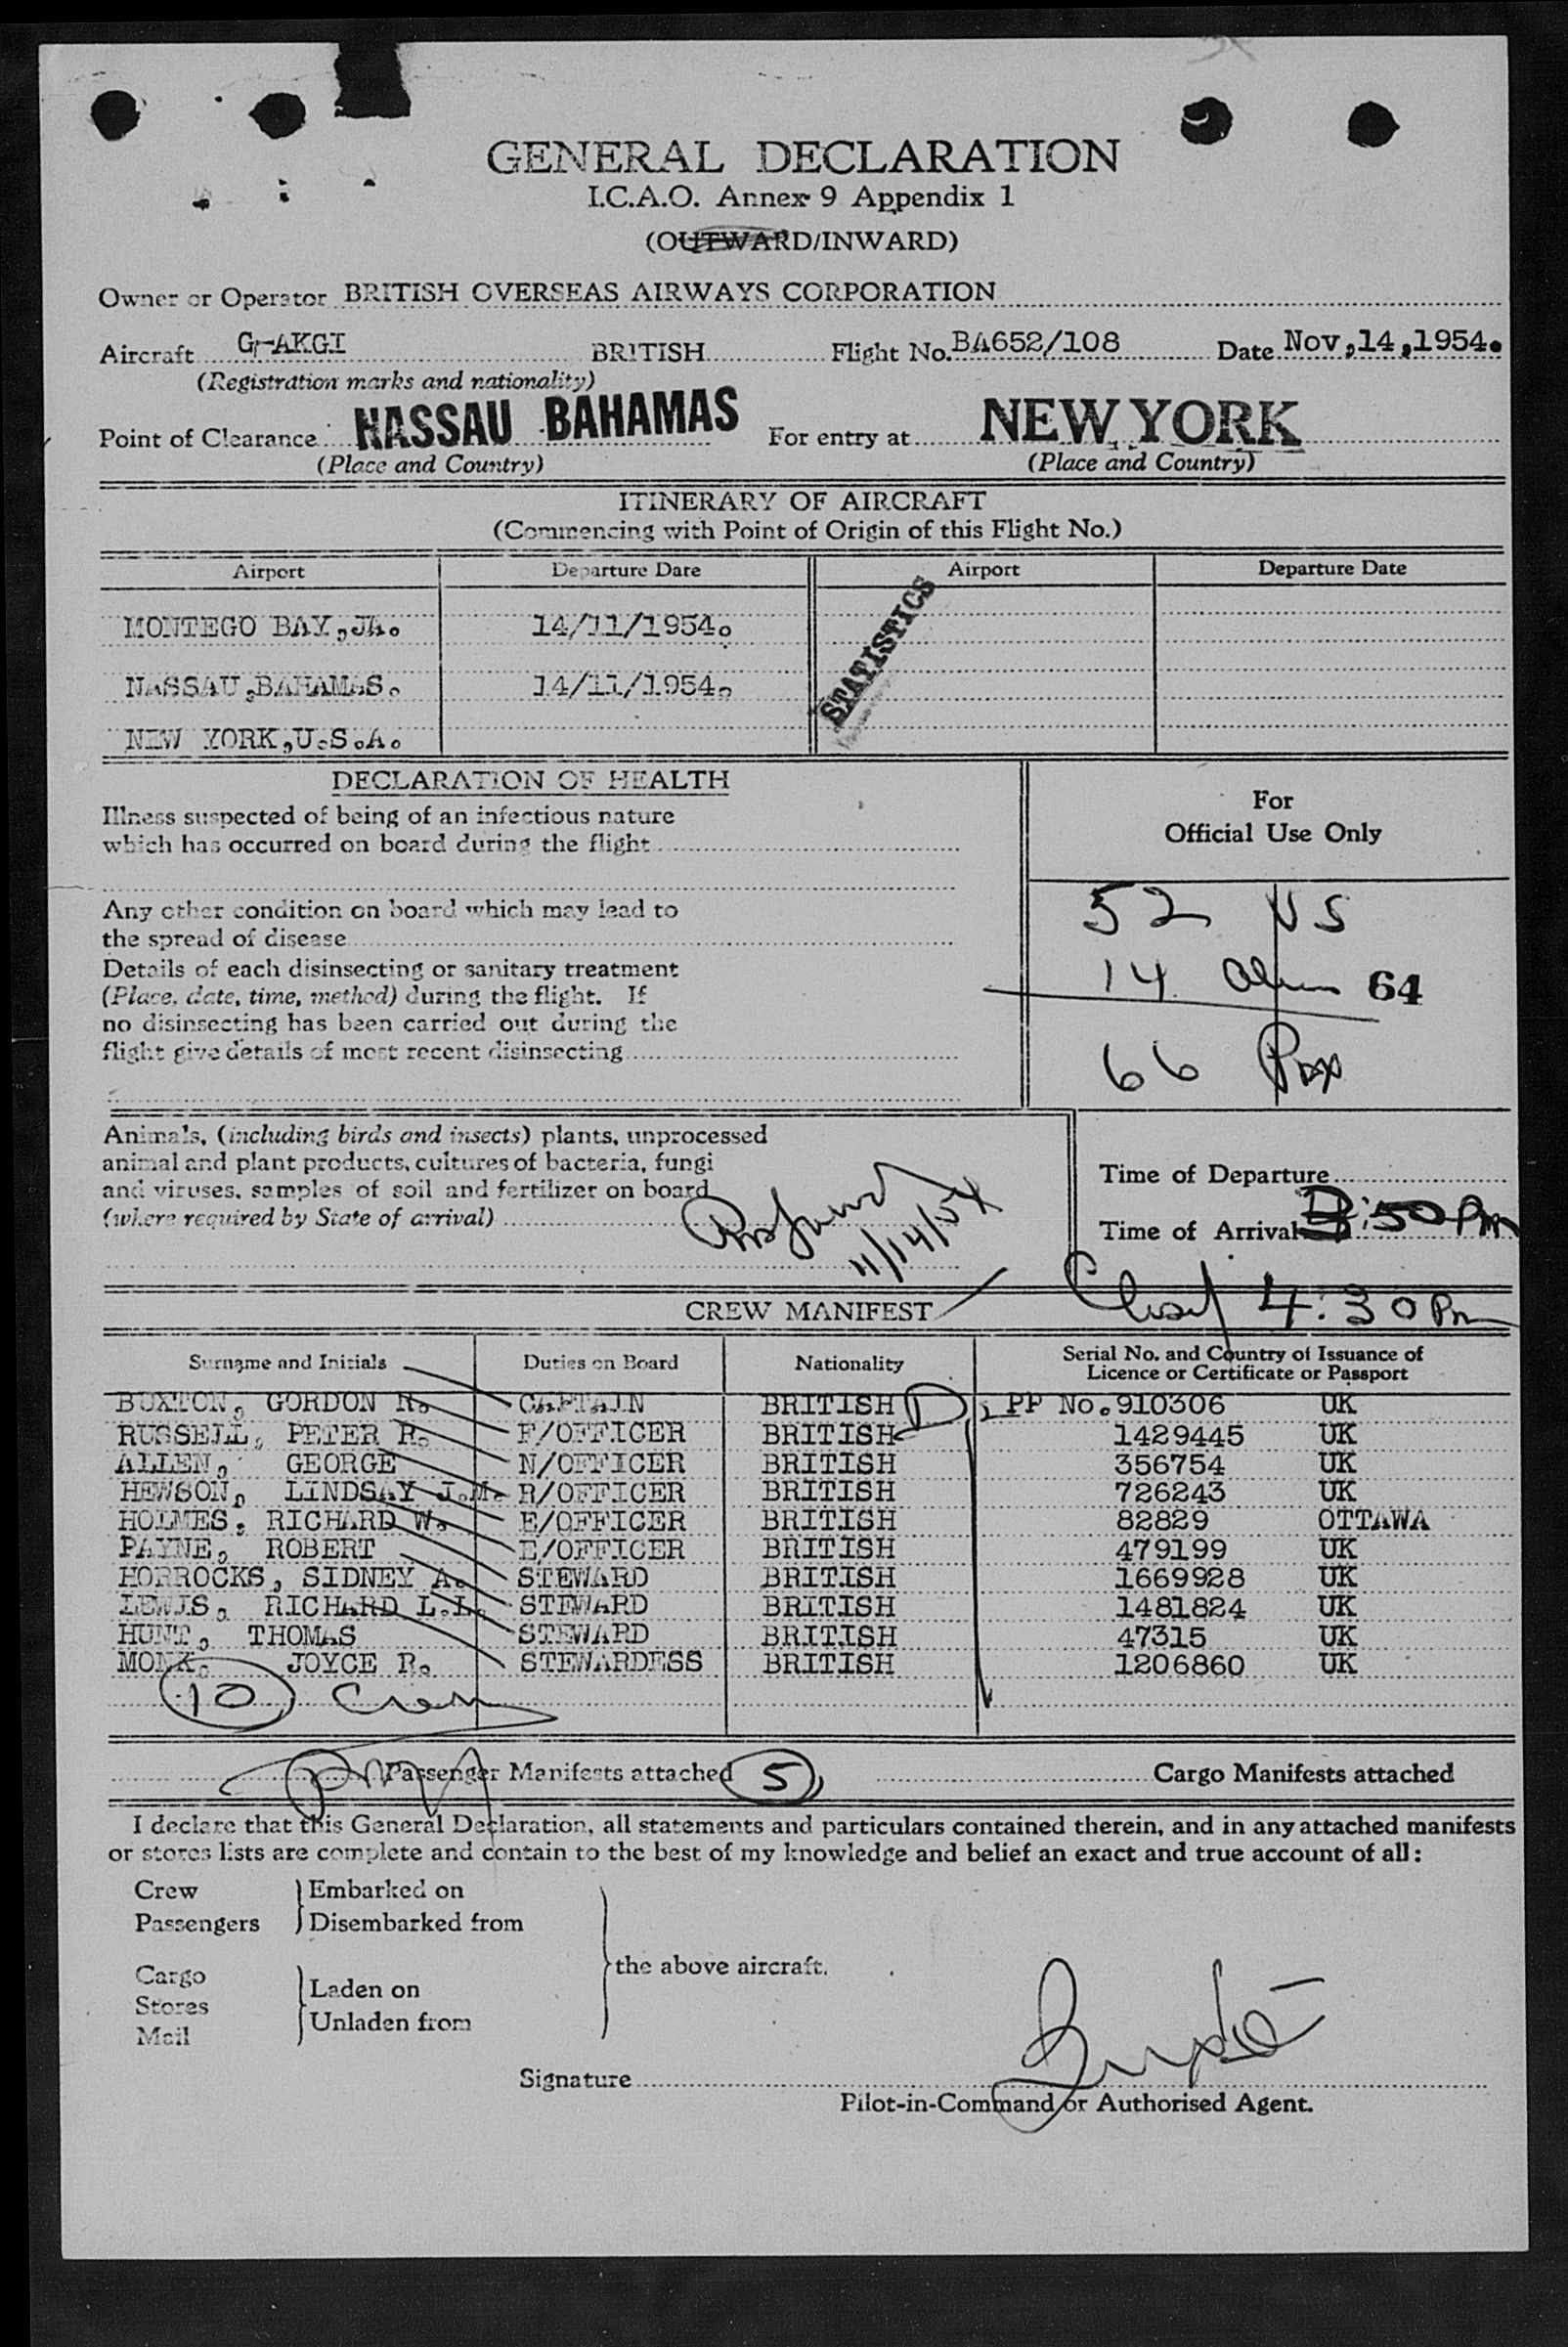 GENERAL DECLARATION
I.C.A.O. Annex 9 Appendix 1
(OUTWARD/INWARD)
Owner or Operator BRITISH OVERSEAS AIRWAYS CORPORATION
Aircraft G-AKGI BRITISH Flight No. BA652/108 Date Nov,14,1954.
(Registration marks and nationality)
Point of Clearance NASSAU BAHAMAS For entry at NEW YORK
(Place and Country) (Place and Country)
ITINERARY OF AIRCRAFT
(Commencing with Point of Origin of this Flight No.)
Airport Departure Date Airport Departure Date
MONTEGO BAY,JA. 14/11/1954.
STATISTICS
NASSAU,BAHAMAS. 14/11/1954.
NEW YORK,U.S.A.
DECLARATION OF HEALTH
Illness suspected of being of an infectious nature
which has occurred on board during the flight
Any other condition on board which may lead to
the spread of disease
Details of each disinsecting or sanitary treatment
(Place, date, time, method) during the flight. If
no disinsecting has been carried out during the
flight give details of most recent disinsecting
For
Official Use Only
52 US
14 64
66
Animals, (including birds and insects) plants, unprocessed
animal and plant products, cultures of bacteria, fungi
and viruses, samples of soil and fertilizer on board
(where required by State of arrival)
11/14/54
Time of Departure
Time of Arrival 3:50 Pm
4:30 Pm
CREW MANIFEST
Surname and Initials Duties on Board Nationality Serial No. and Country of Issuance of
Licence or Certificate or Passport
BUXTON, GORDON R. CAPTAIN BRITISH D PP No.910306 UK
RUSSELL, PETER R. F/OFFICER BRITISH 1429445 UK
ALLEN, GEORGE N/OFFICER BRITISH 356754 UK
HEWSON, LINDSAY J.M. R/OFFICER BRITISH 726243 UK
HOLMES, RICHARD W. E/OFFICER BRITISH 82829 OTTAWA
PAYNE, ROBERT E/OFFICER BRITISH 479199 UK
HORROCKS, SIDNEY A. STEWARD BRITISH 1669928 UK
LEWIS, RICHARD L.L. STEWARD BRITISH 1481824 UK
HUNT, THOMAS STEWARD BRITISH 47315 UK
MONK, JOYCE R. STEWARDESS BRITISH 1206860 UK
10 Crew
Passenger Manifests attached 5 Cargo Manifests attached
I declare that this General Declaration, all statements and particulars contained therein, and in any attached manifests
or stores lists are complete and contain to the best of my knowledge and belief an exact and true account of all:
Crew Embarked on
Passengers Disembarked from
the above aircraft.
Cargo
Laden on
Stores
Unladen from
Mail
Signature
Pilot-in-Command or Authorised Agent.